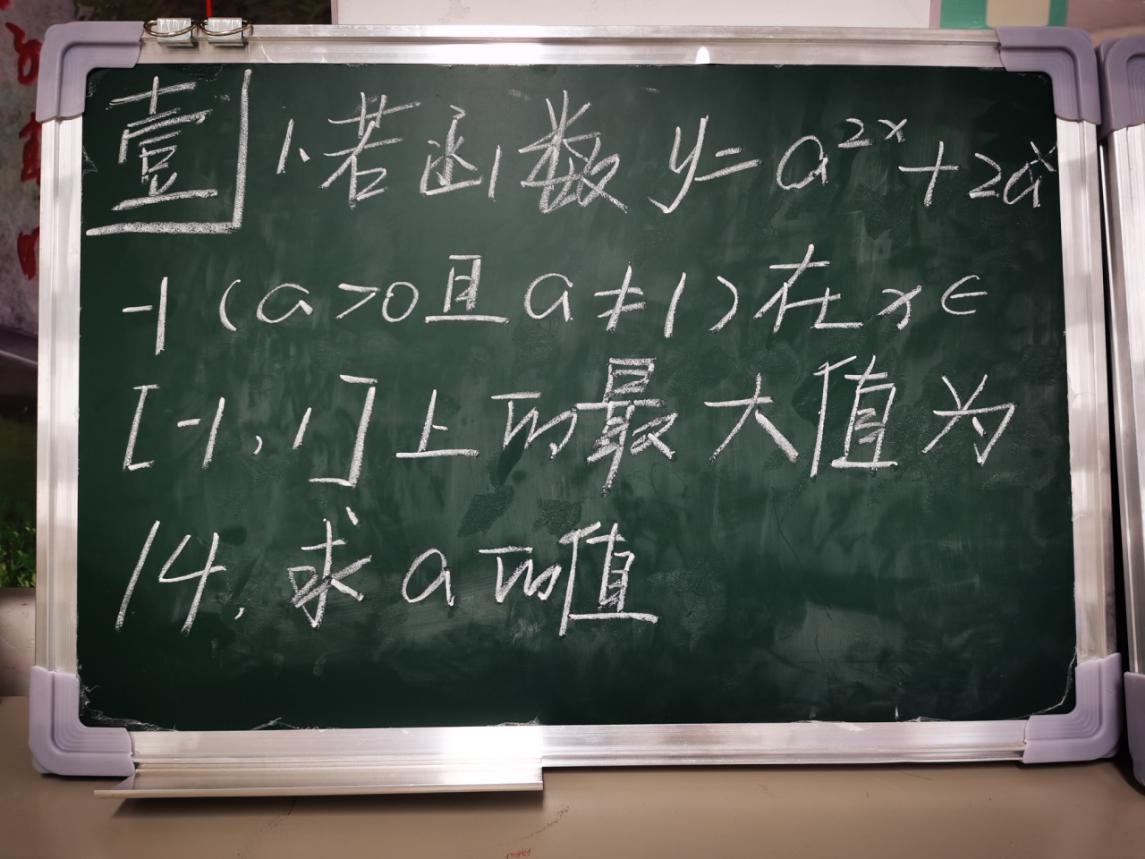 壹 1、若函数 y=a²ˣ+2aˣ
-1 (a>0且a≠1)在x∈
[-1,1]上的最大值为
14,求a的值